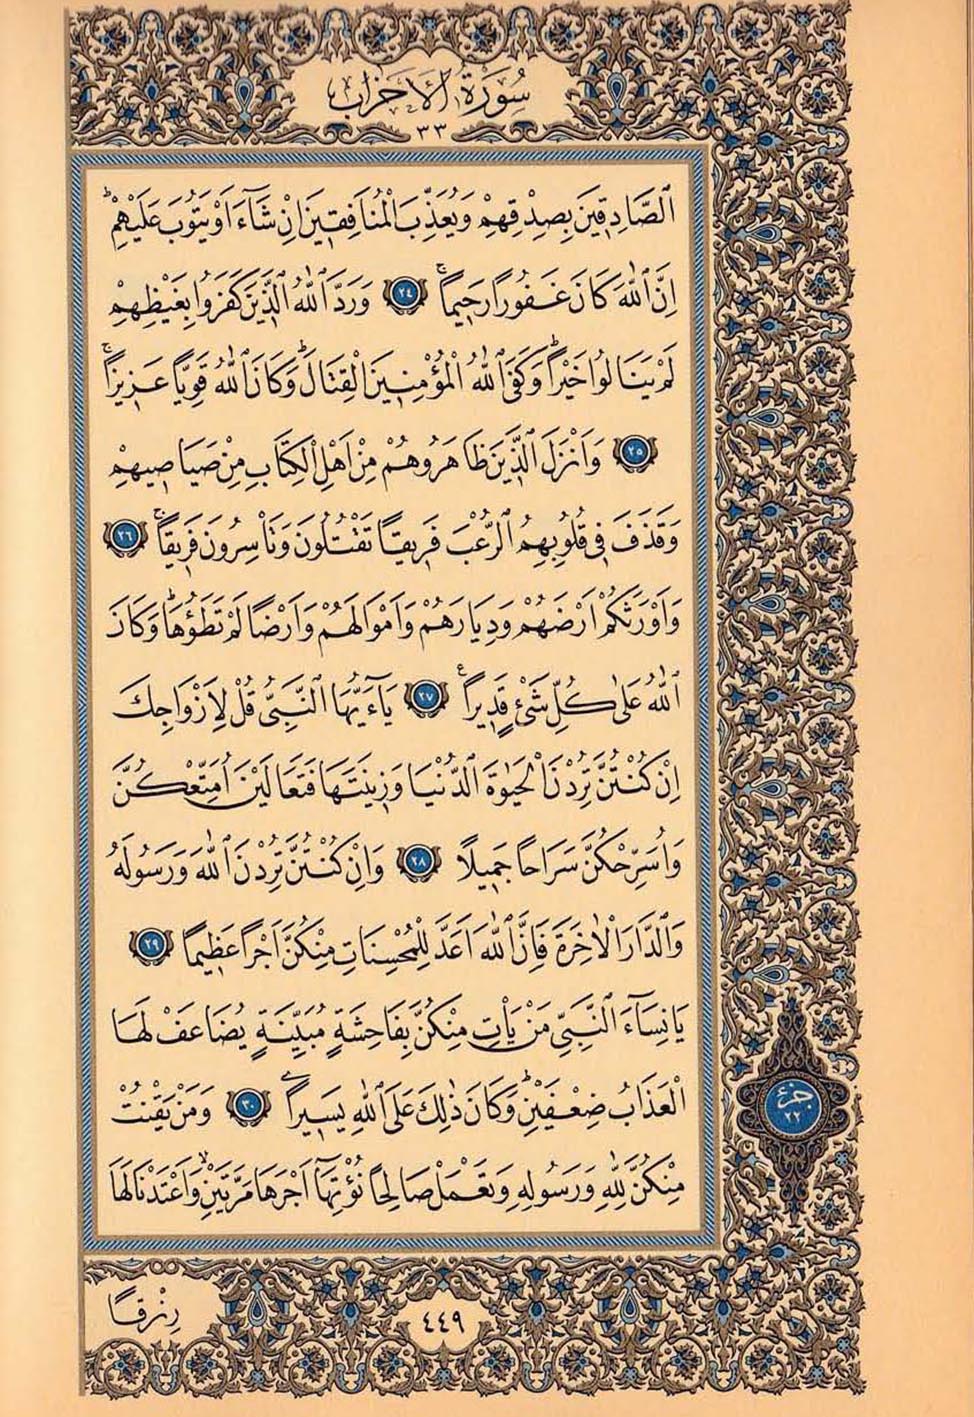 سُورَةُ الْاَحْزَابِ
٣٣
الصَّادِقِينَ بِصِدْقِهِمْ وَيُعَذِّبَ الْمُنَافِقِينَ اِنْ شَاءَ اَوْ يَتُوبَ عَلَيْهِمْۜ
اِنَّ اللّٰهَ كَانَ غَفُورًا رَحِيمًاۚ ﴿٢٤﴾ وَرَدَّ اللّٰهُ الَّذِينَ كَفَرُوا بِغَيْظِهِمْ
لَمْ يَنَالُوا خَيْرًاۜ وَكَفَى اللّٰهُ الْمُؤْمِنِينَ الْقِتَالَۜ وَكَانَ اللّٰهُ قَوِيًّا عَزِيزًاۚ
﴿٢٥﴾ وَاَنْزَلَ الَّذِينَ ظَاهَرُوهُمْ مِنْ اَهْلِ الْكِتَابِ مِنْ صَيَاصِيهِمْ
وَقَذَفَ فِي قُلُوبِهِمُ الرُّعْبَ فَرِيقًا تَقْتُلُونَ وَتَأْسِرُونَ فَرِيقًاۚ ﴿٢٦﴾
وَاَوْرَثَكُمْ اَرْضَهُمْ وَدِيَارَهُمْ وَاَمْوَالَهُمْ وَاَرْضًا لَمْ تَطَؤُ۫هَاۜ وَكَانَ
اللّٰهُ عَلٰى كُلِّ شَيْءٍ قَدِيرًا۟ ﴿٢٧﴾ يَاءَيُّهَا النَّبِيُّ قُلْ لِاَزْوَاجِكَ
اِنْ كُنْتُنَّ تُرِدْنَ الْحَيٰوةَ الدُّنْيَا وَزِينَتَهَا فَتَعَالَيْنَ اُمَتِّعْكُنَّ
وَاُسَرِّحْكُنَّ سَرَاحًا جَمِيلًا ﴿٢٨﴾ وَاِنْ كُنْتُنَّ تُرِدْنَ اللّٰهَ وَرَسُولَهُ
وَالدَّارَ الْاٰخِرَةَ فَاِنَّ اللّٰهَ اَعَدَّ لِلْمُحْسِنَاتِ مِنْكُنَّ اَجْرًا عَظِيمًا ﴿٢٩﴾
يَانِسَاءَ النَّبِيِّ مَنْ يَأْتِ مِنْكُنَّ بِفَاحِشَةٍ مُبَيِّنَةٍ يُضَاعَفْ لَهَا
الْعَذَابُ ضِعْفَيْنِۜ وَكَانَ ذٰلِكَ عَلَى اللّٰهِ يَسِيرًا ﴿٣٠﴾ وَمَنْ يَقْنُتْ
مِنْكُنَّ لِلّٰهِ وَرَسُولِهِ وَتَعْمَلْ صَالِحًا نُؤْتِهَا اَجْرَهَا مَرَّتَيْنِۙ وَاَعْتَدْنَا لَهَا
جزء
٢٢
رِزْقًا
٤٤٩